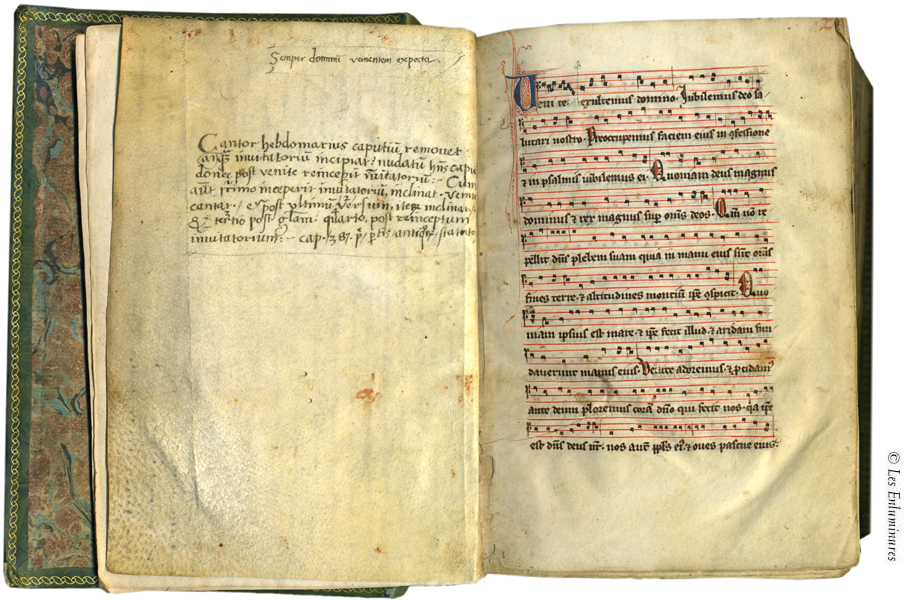 Semper dominū venientem expecta.
Cantor hebdomarius caputiū removet
anqꝫ invitatoriū incipiat: nudatū hñs capu
donec post venite reinceperit invitatoriū: - Cum
aūt primo inceperit invitatoriū, inclinat. Venite
cantat. et post ultimum versum, iteꝫ inclinat.
tertio post glam: quarto, post reinceptum
invitatorium: - cap. 38. statuto
Venite exultemus domino. Jubilemus deo sa
lutari nostro. Preoccupemus faciem eius in ꝯfessione
⁊ in psalmis iubilemus ei. Quoniam deus magnus
dominus ⁊ rex magnus sup̄ om̄s deos. Qm̄ nō re
pellit dn̄s plebem suam quia in manu eius sūt om̄s
fines terre. ⁊ altitudines montiū ip̄e ꝯspicit. Quo
niam ipsius est mare. ⁊ ip̄e fecit illud. ⁊ aridam fun
daverunt manus eius. Venite adoremus. ⁊ p̄cidam᾽
ante deum ploremus corā dn̄o qui fecit nos. q̄a ip̄e
est dn̄s deus nr̄. nos aut̄ ppl̄s ei᾽. ⁊ oves pascue eius.
© Les Enluminures